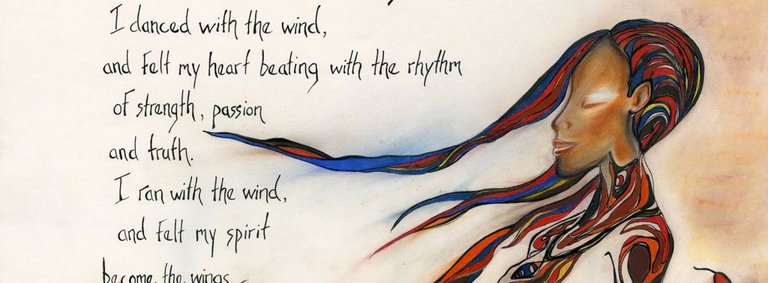 I danced with the wind,
and felt my heart beating with the rhythm
of strength, passion
and truth.
I ran with the wind,
and felt my spirit
become the wings